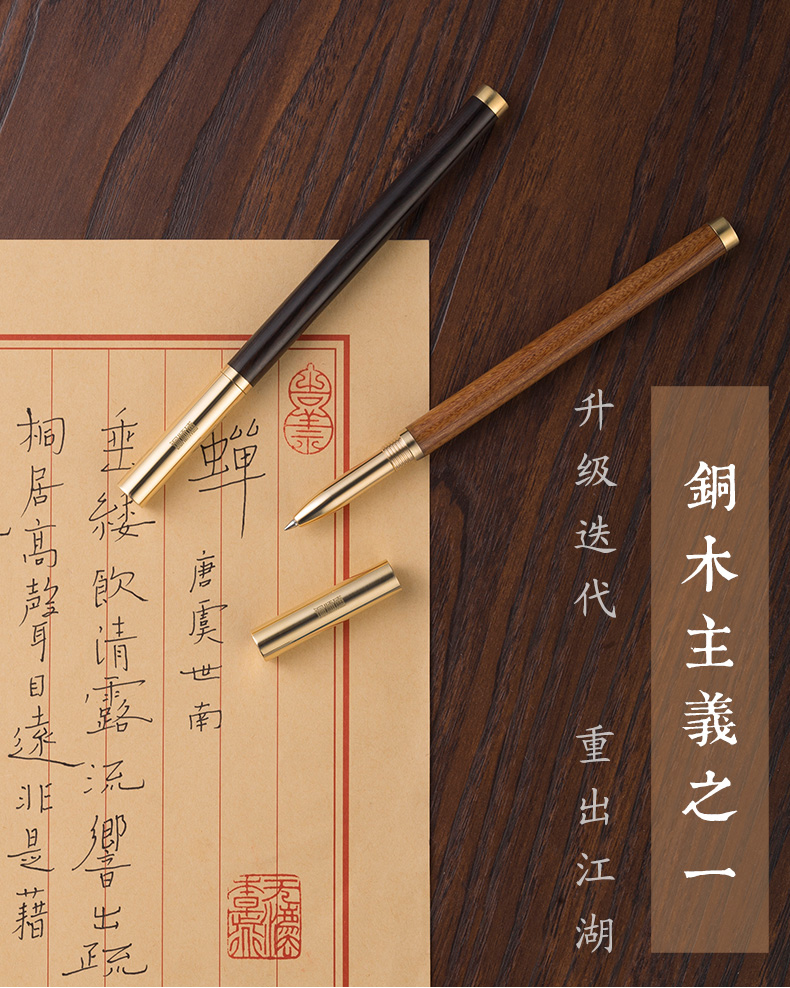 銅木主義之一
升级迭代 重出江湖
蟬
唐虞世南
垂緌飲清露流響出疏
桐居高聲自遠非是藉